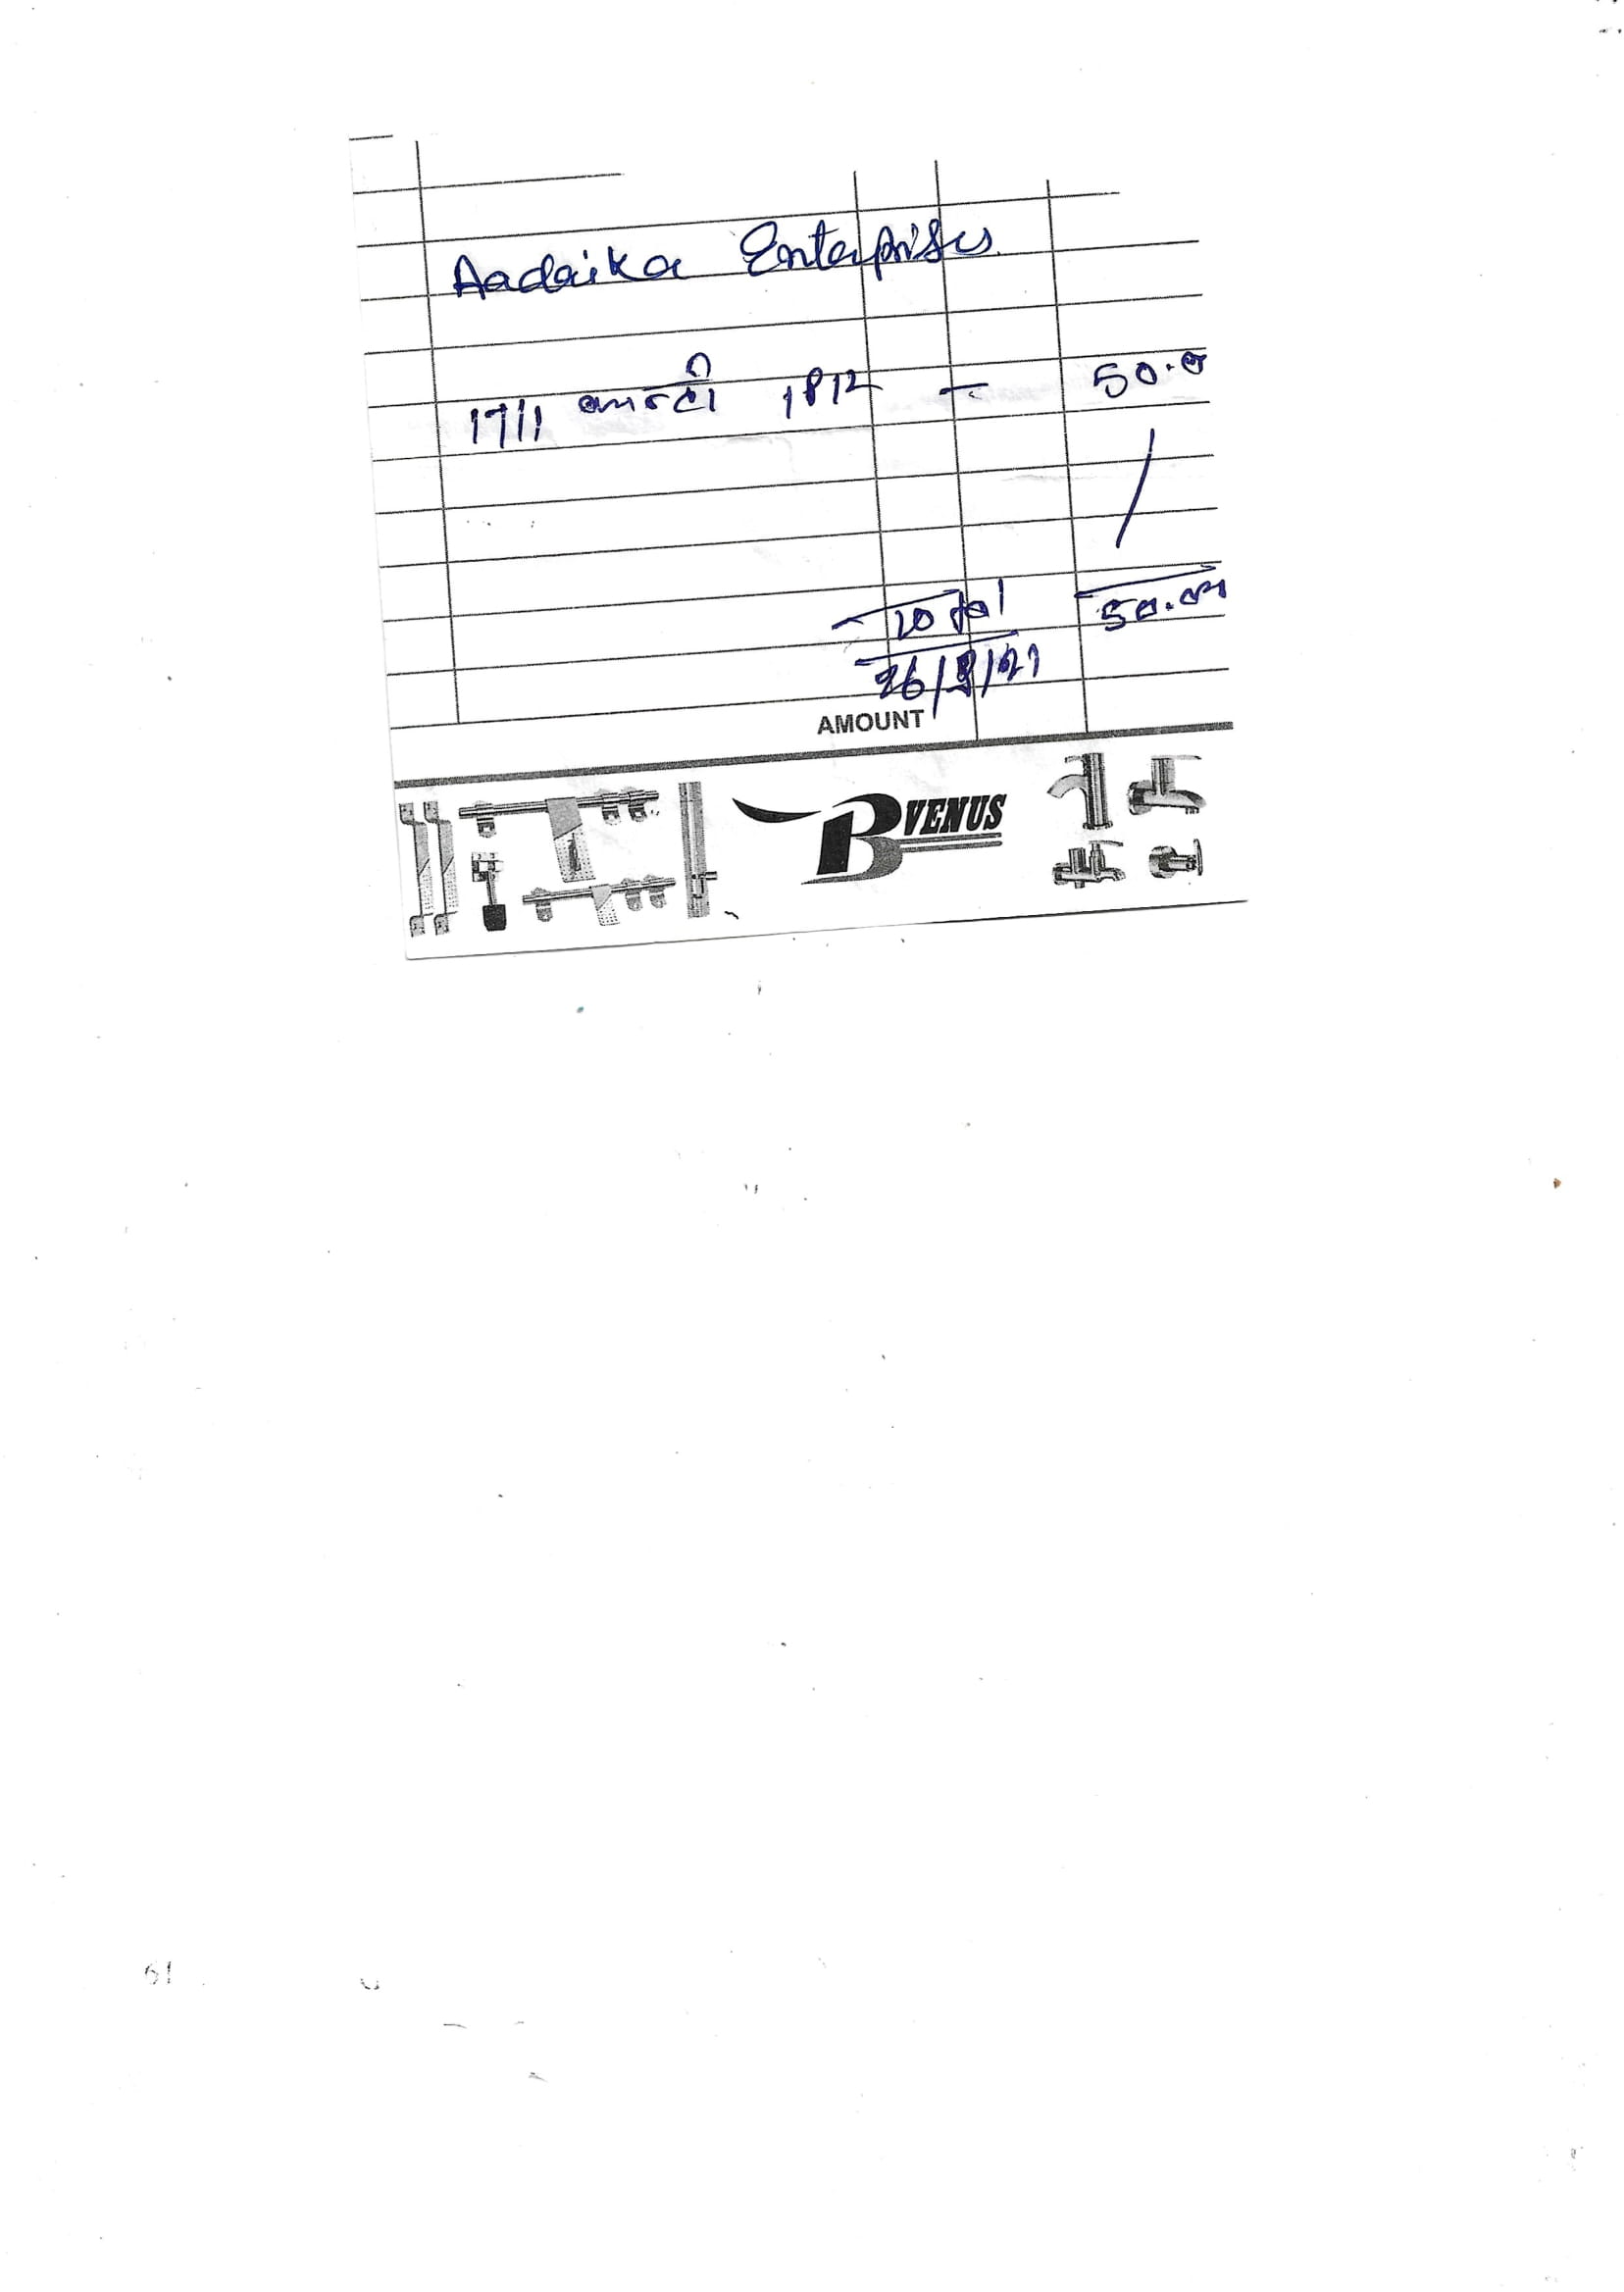 Aadaika Enterprises
1711 1812 — 50.0
Total 50.00
26/3/21
AMOUNT
B VENUS